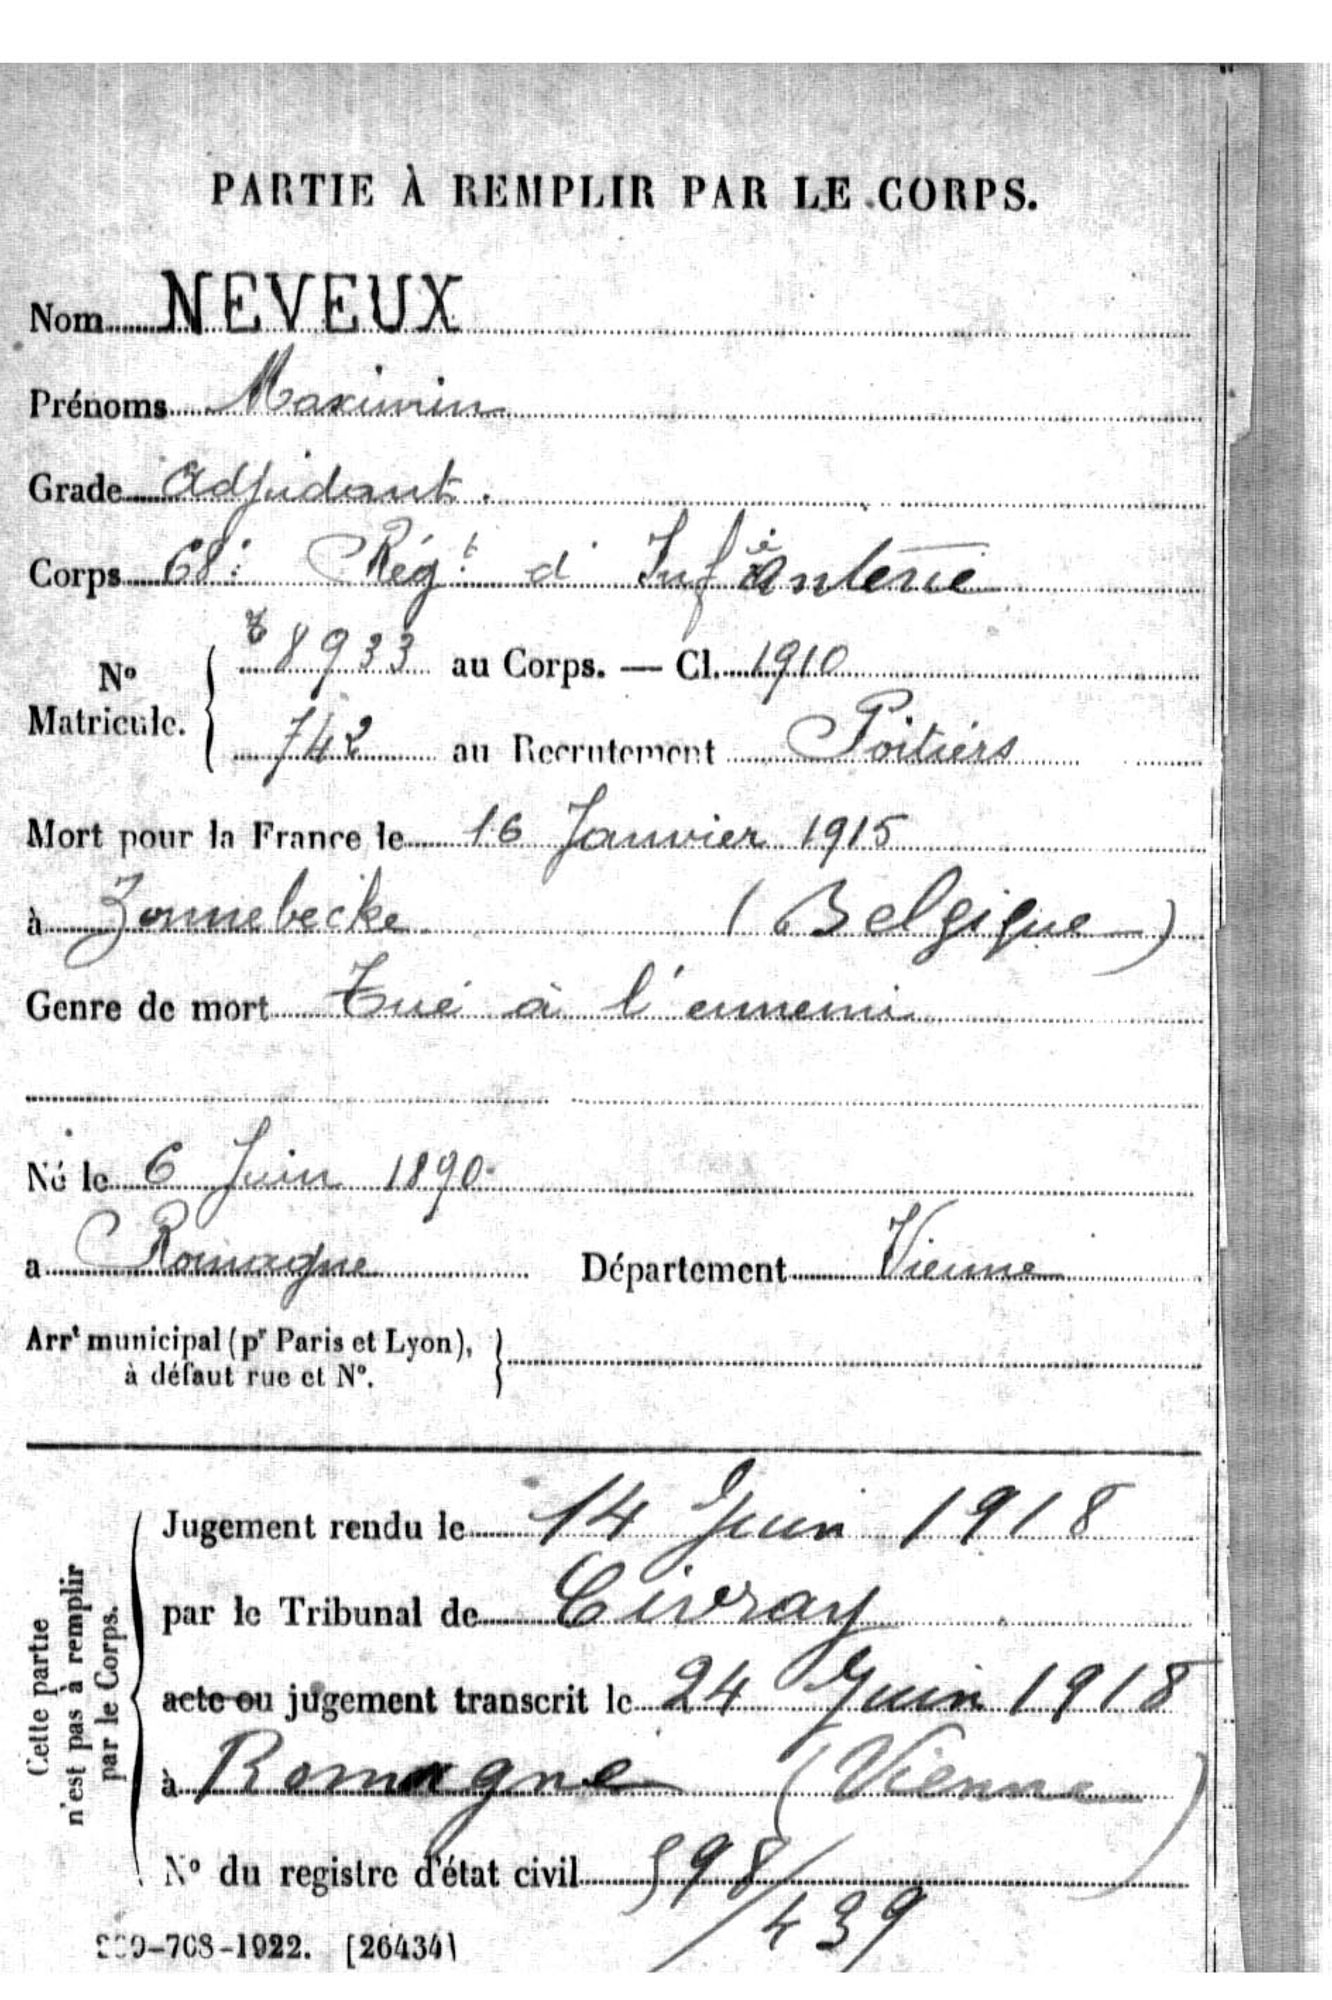 PARTIE À REMPLIR PAR LE CORPS.
Nom NEVEUX
Prénoms Maximin
Grade Adjudant.
Corps 68e Régt d'Infanterie
No Matricule. 8933 au Corps. — Cl. 1910
742 au Recrutement Poitiers
Mort pour la France le 16 Janvier 1915
à Zonnebecke (Belgique)
Genre de mort Tué à l'ennemi
Né le 6 Juin 1890
a Romagne Département Vienne
Arrt municipal (pr Paris et Lyon),
à défaut rue et No.
Cette partie
n'est pas à remplir
par le Corps.
Jugement rendu le 14 Juin 1918
par le Tribunal de Civray
acte ou jugement transcrit le 24 Juin 1918
à Romagne (Vienne)
No du registre d'état civil 598/439
-708-1922. [26434]